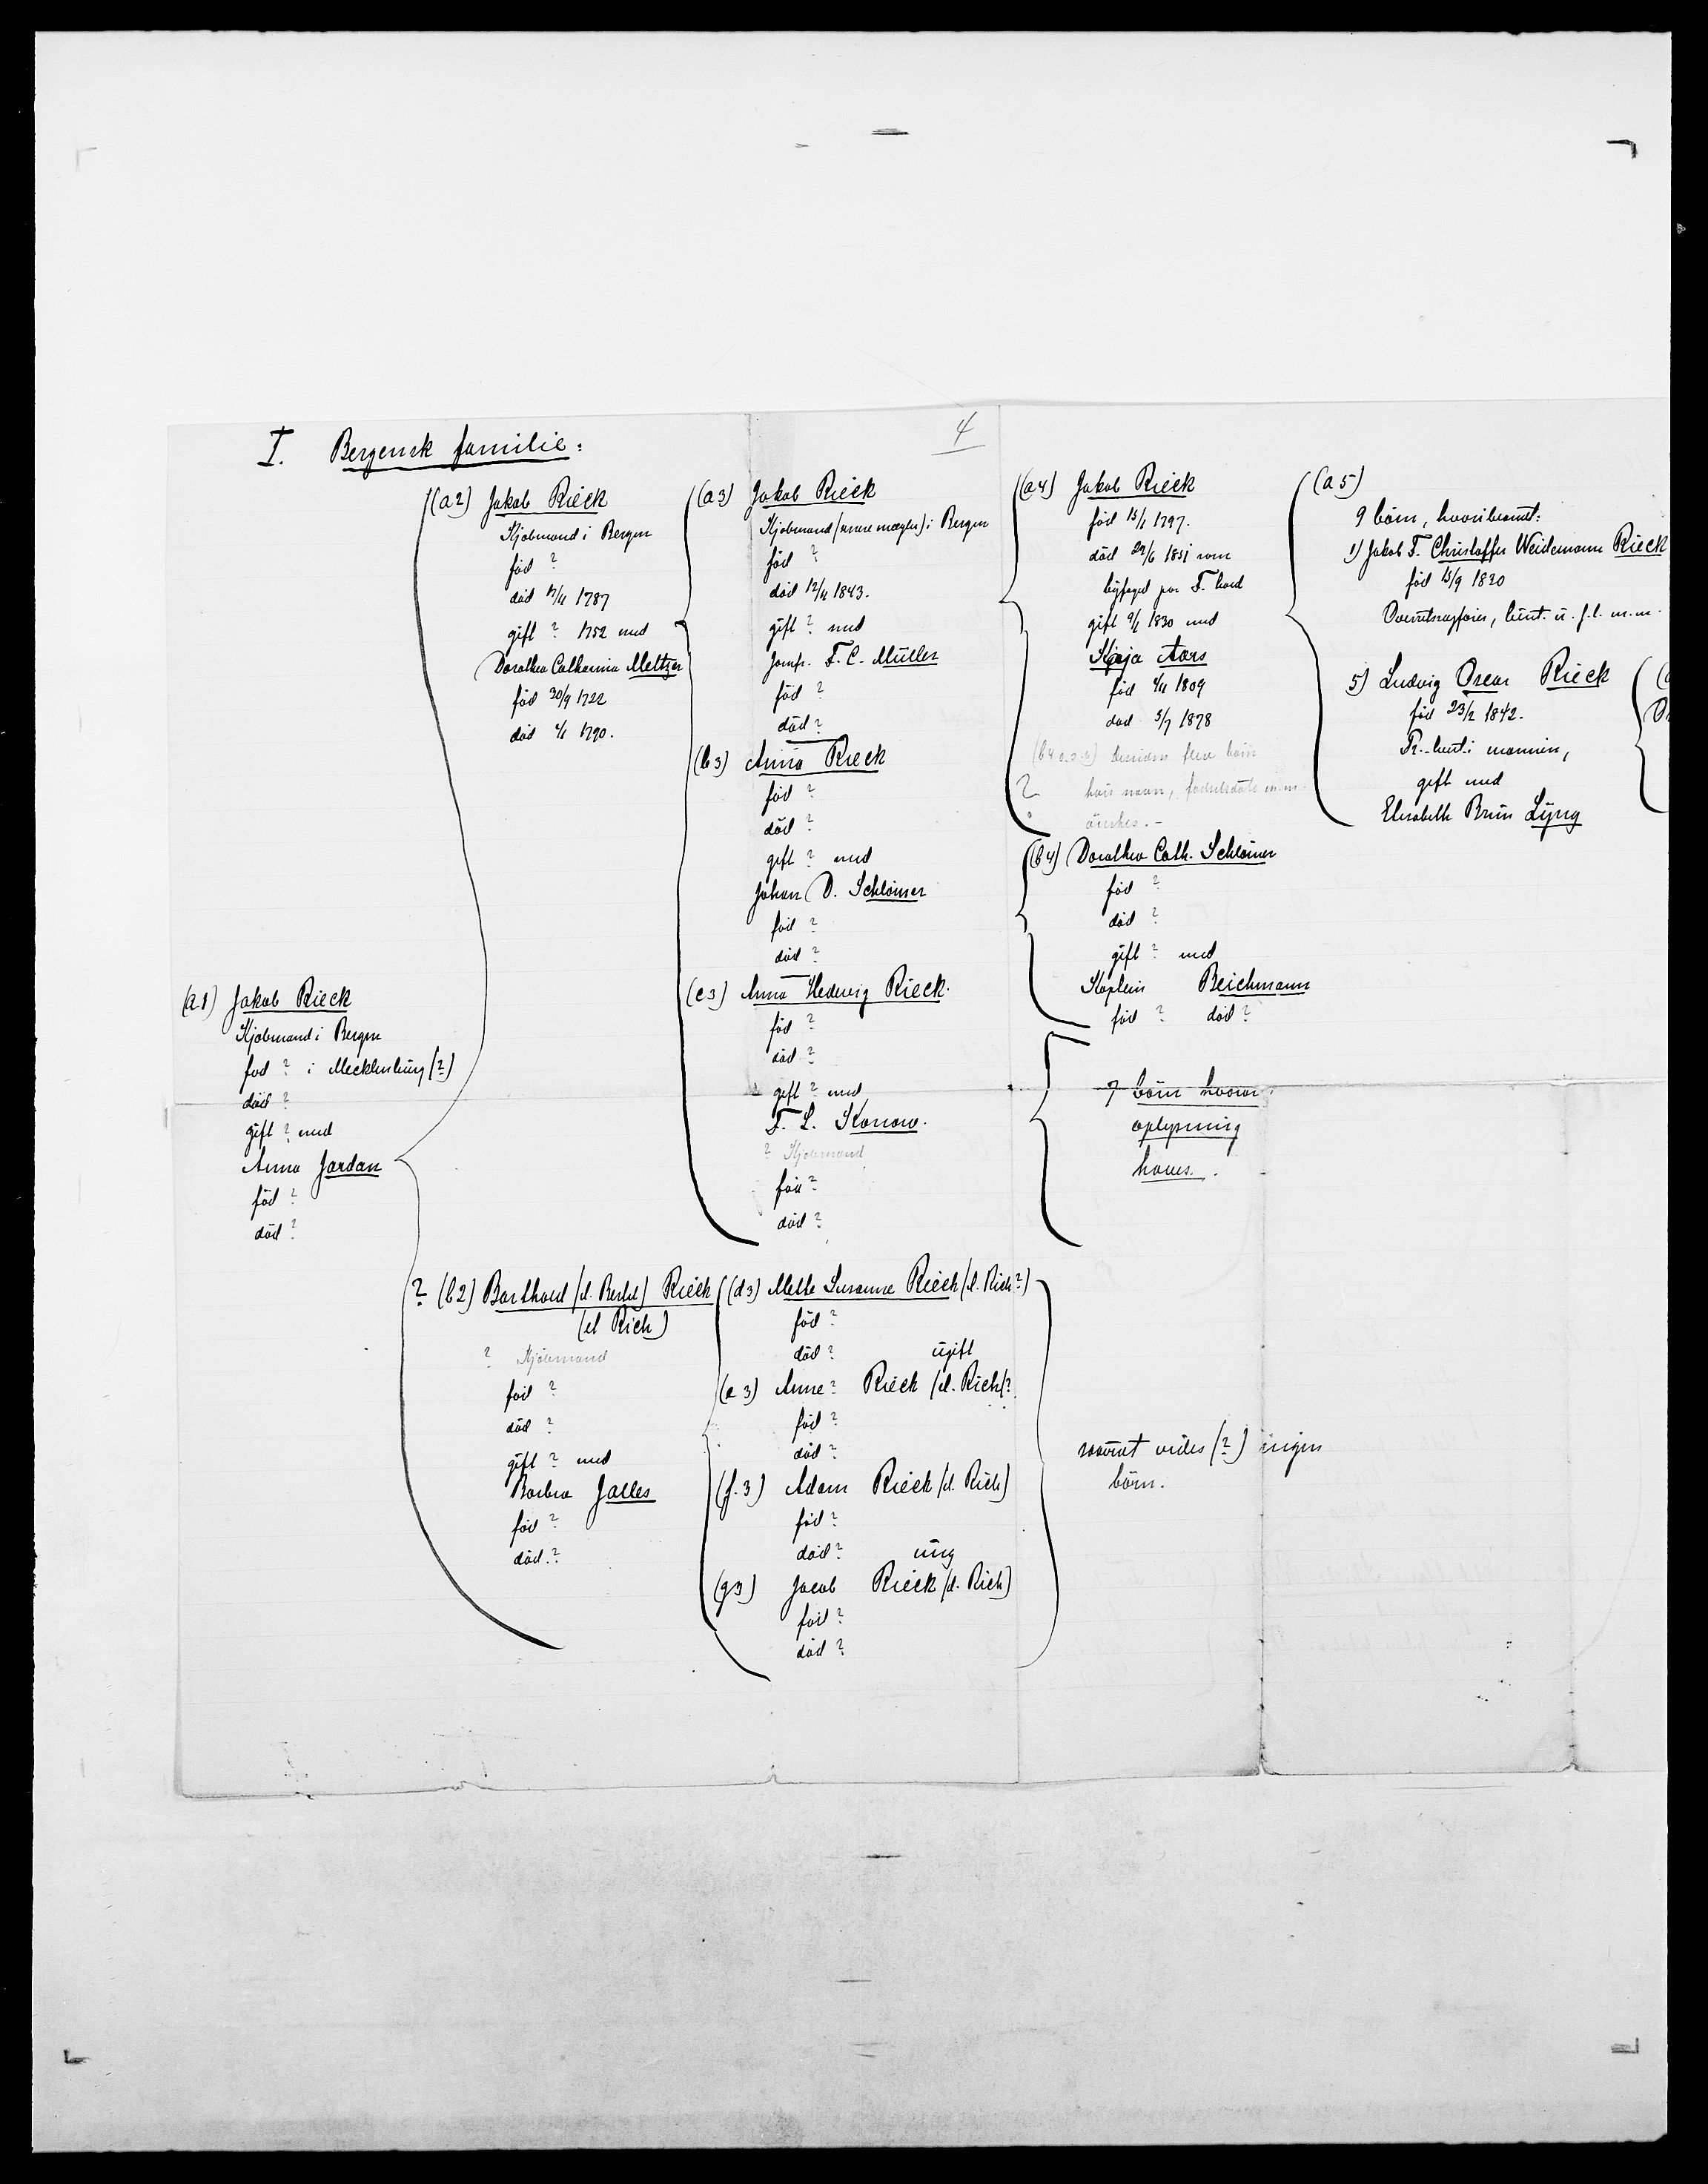 4
I. Bergensk familie:
(a1) Jakob Rieck
Kjöbmand i Bergen
född ? i Mecklenburg (?)
död ?
gift ? med
Anna Jordan
föd ?
död ?
(a2) Jakob Rieck
Kjöbmand i Bergen
föd ?
död 1787
gift ? 1752 med
Dorothea Catharina Meltzer
föd 30/9 1722
död 1790.
? (b2) Barthold (el. Bertel) Rieck
(el Rich)
? Kjöbmand
föd ?
död ?
gift ? med
Barbra Jalles
föd ?
död ?
(a3) Jakob Rieck
Kjöbmand (senere mægler) i Bergen
föd ?
död 12/11 1843.
gift ? med
Jomfr. F. C. Müller
föd ?
död ?
(b3) Anna Rieck
föd ?
död ?
gift ? med
Johan D. Schlömer
föd ?
död ?
(c3) Anna Hedevig Rieck.
föd ?
död ?
gift ? med
F. L. Konow.
? Kjöbmand
föd ?
död ?
(d3) Mette Susanne Rieck (el. Rich ?)
föd ?
död ? ugift
(e3) Anne ? Rieck (el. Rich) ?
föd ?
död ?
(f.3) Adam Rieck (el. Rich)
föd ?
död ? ung
(g3) Jacob Rieck (el. Rich)
föd ?
död ?
(a4) Jakob Rieck
föd 15/1 1797.
död 22/6 1851 som
byfoged paa F. hald
gift 1830 med
Kaja Aars
föd 1809
död 5/7 1878
(b4 o.s.v.) desuden flere börn
? hvis navn, födselsdato m.m.
önskes. -
(b4) Dorothea Cath. Schlömer
föd ?
död ?
gift ? med
Kaptein Beichmann
föd ? död ?
7 börn hvorom
oplysning
haves.
saavidt vides (?) ingen
börn.
(a5)
9 börn, hvoriblandt:
1) Jakob F. Christoffer Weidemann Rieck
föd 15/9 1830
Overretssagförer, lieut. u. f. l. m.m.
5) Ludvig Oscar Rieck
föd 23/2 1842.
Pr.-lieut. i marinen,
gift med
Elisabeth Brun Lyng